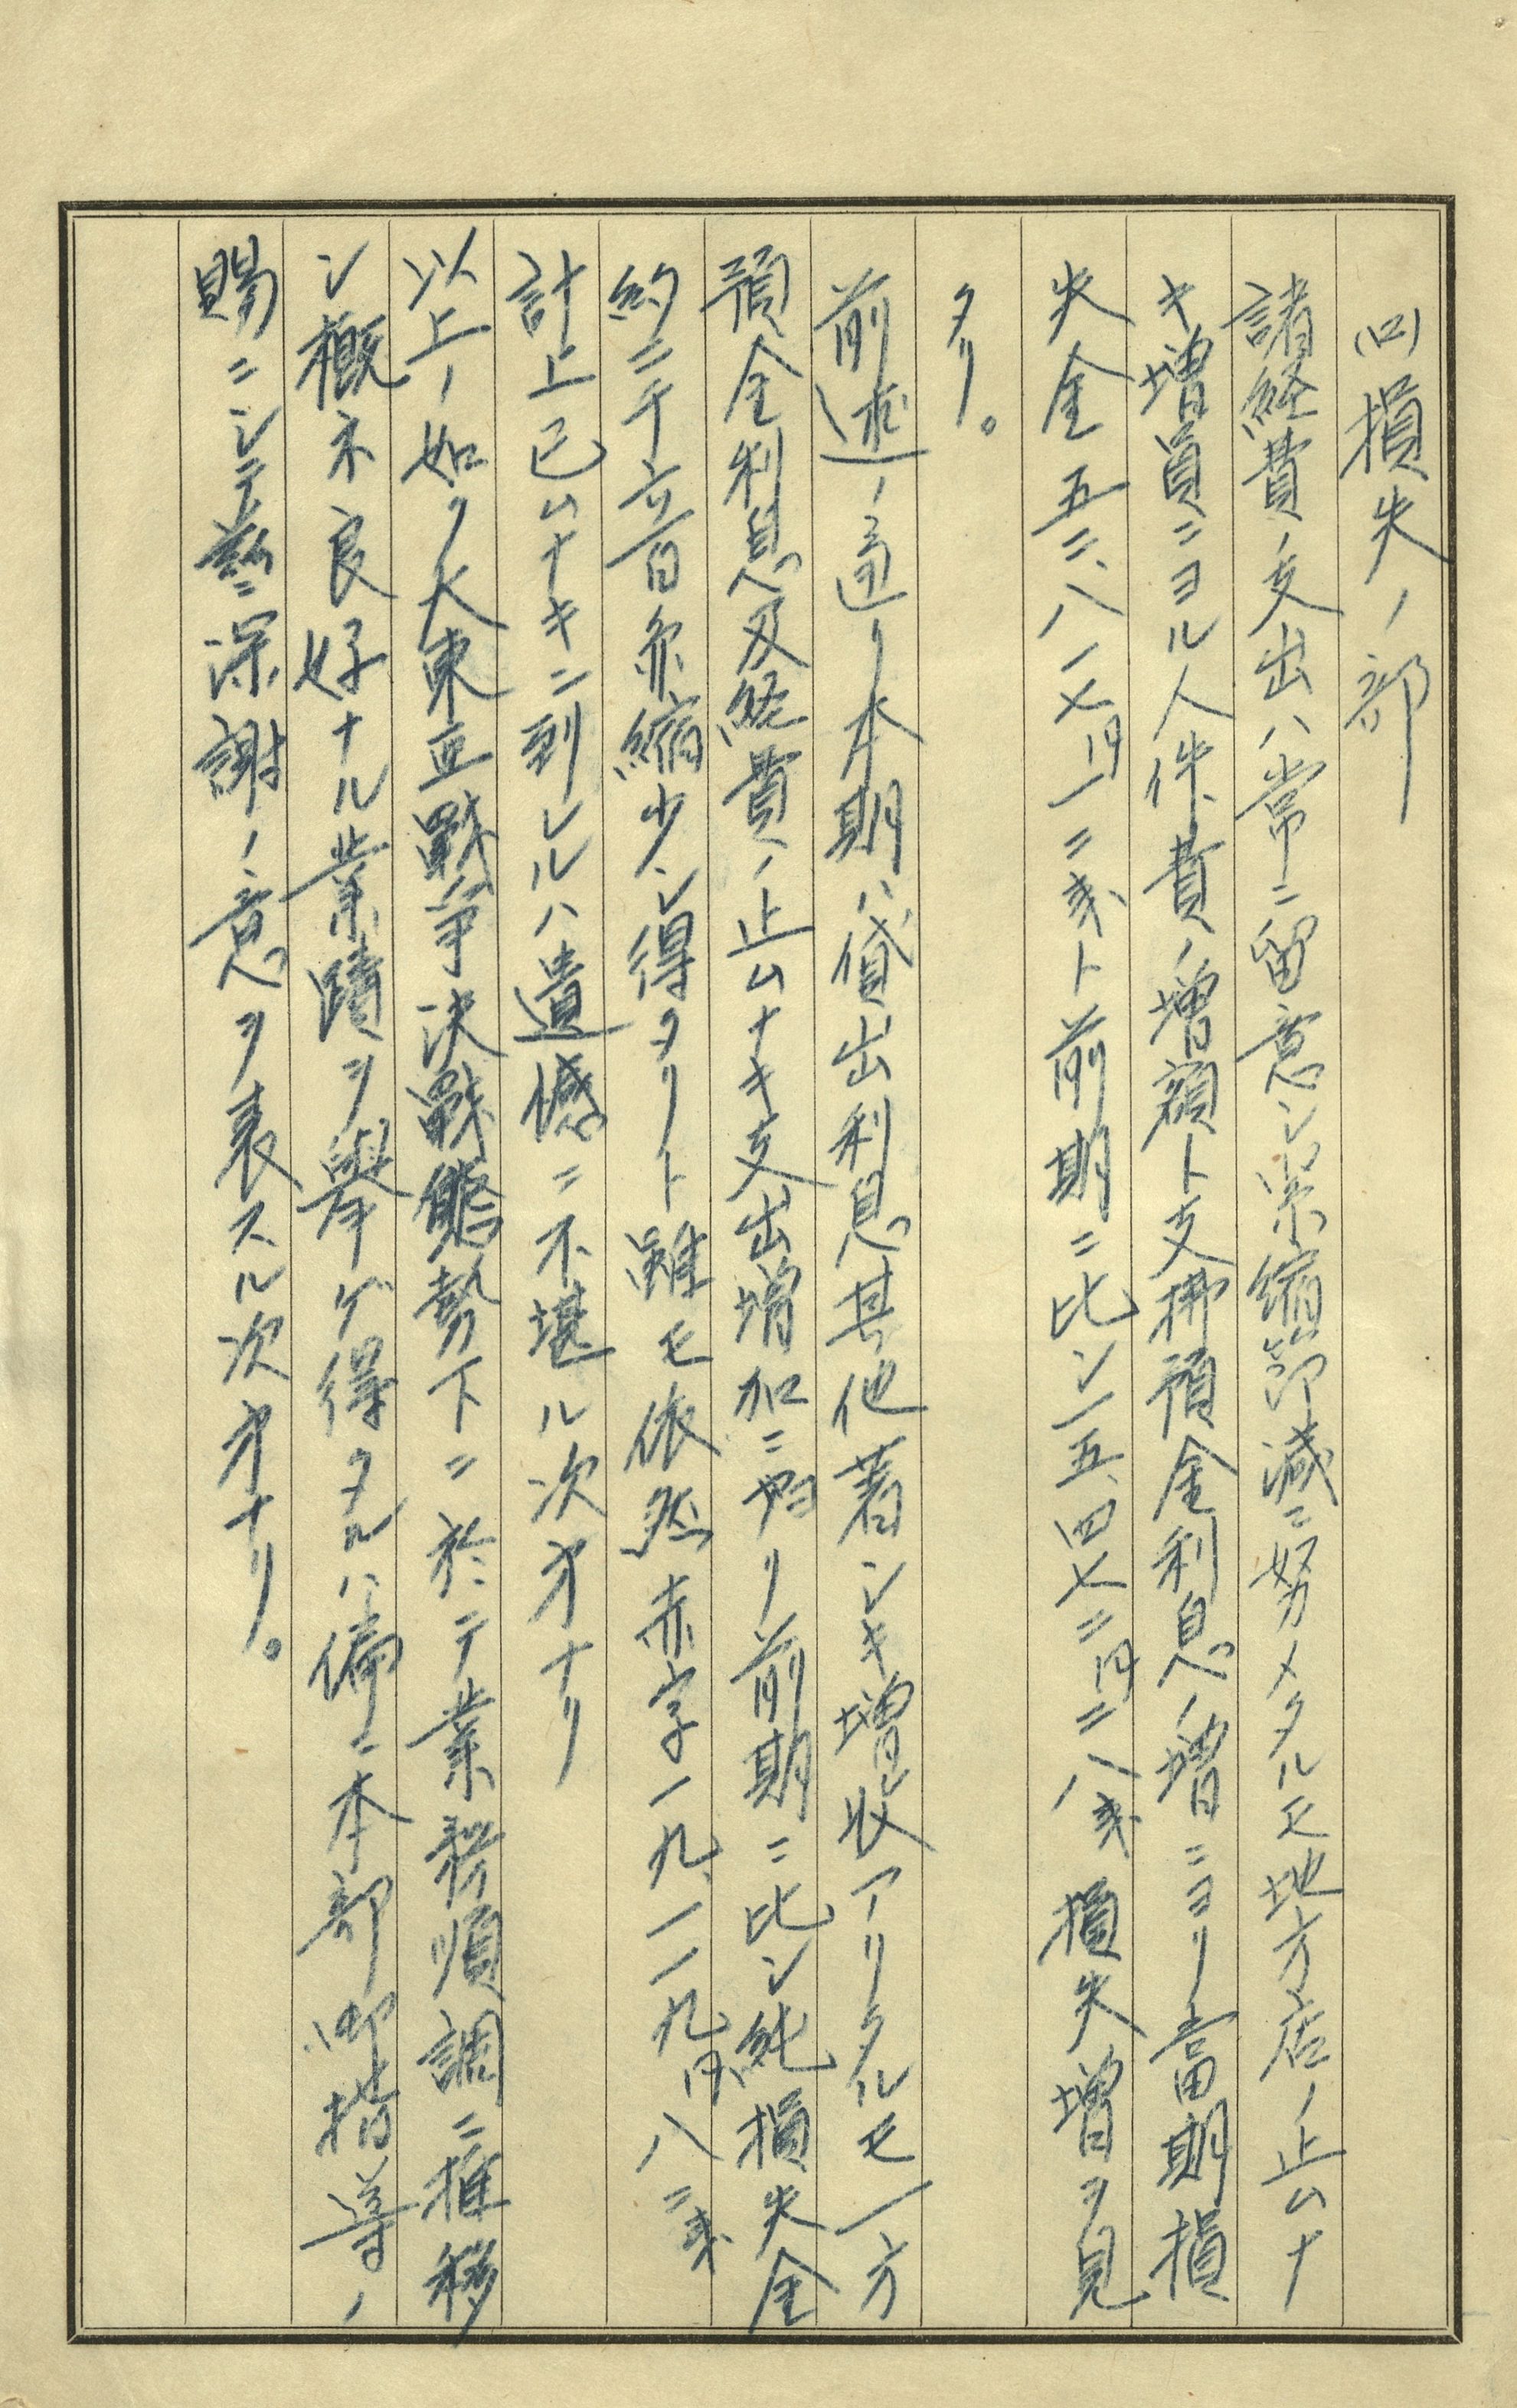 (ロ)損失ノ部
諸経費ノ支出ハ常ニ留意シ緊縮節減ニ努メタルモ地方店ノ止ムナ
キ増員ニヨル人件費ノ増額ト支拂預金利息ノ増ニヨリ當期損
失金五二、八一七円一二銭ト前期ニ比シ一五、四七二円二八銭損失増ヲ見
タリ。
前述ノ通リ本期ハ貸出利息其他著シキ増収アリタルモ一方
預金利息及経費ノ止ムナキ支出増加ニヨリ前期ニ比シ純損失金
約二千六百余縮少シ得タリト雖モ依然赤字一九、一一九円八二銭
計上已ムナキニ到レルハ遺憾ニ不堪ル次才ナリ
以上ノ如ク大東亜戰争決戰態勢下ニ於テ業務順調ニ推移
シ概ネ良好ナル業蹟ヲ擧ゲ得タルハ偏ニ本部御指導ノ
賜ニシテ玆ニ深謝ノ意ヲ表スル次才ナリ。